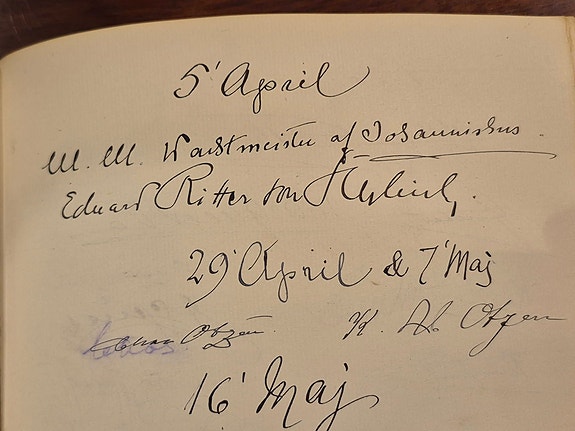 5' April
M. M. Wachtmeister af Johannishus.
Eduard Ritter von
29' April & 7' Maj
Johan Otzen. K. Otzen
16' Maj